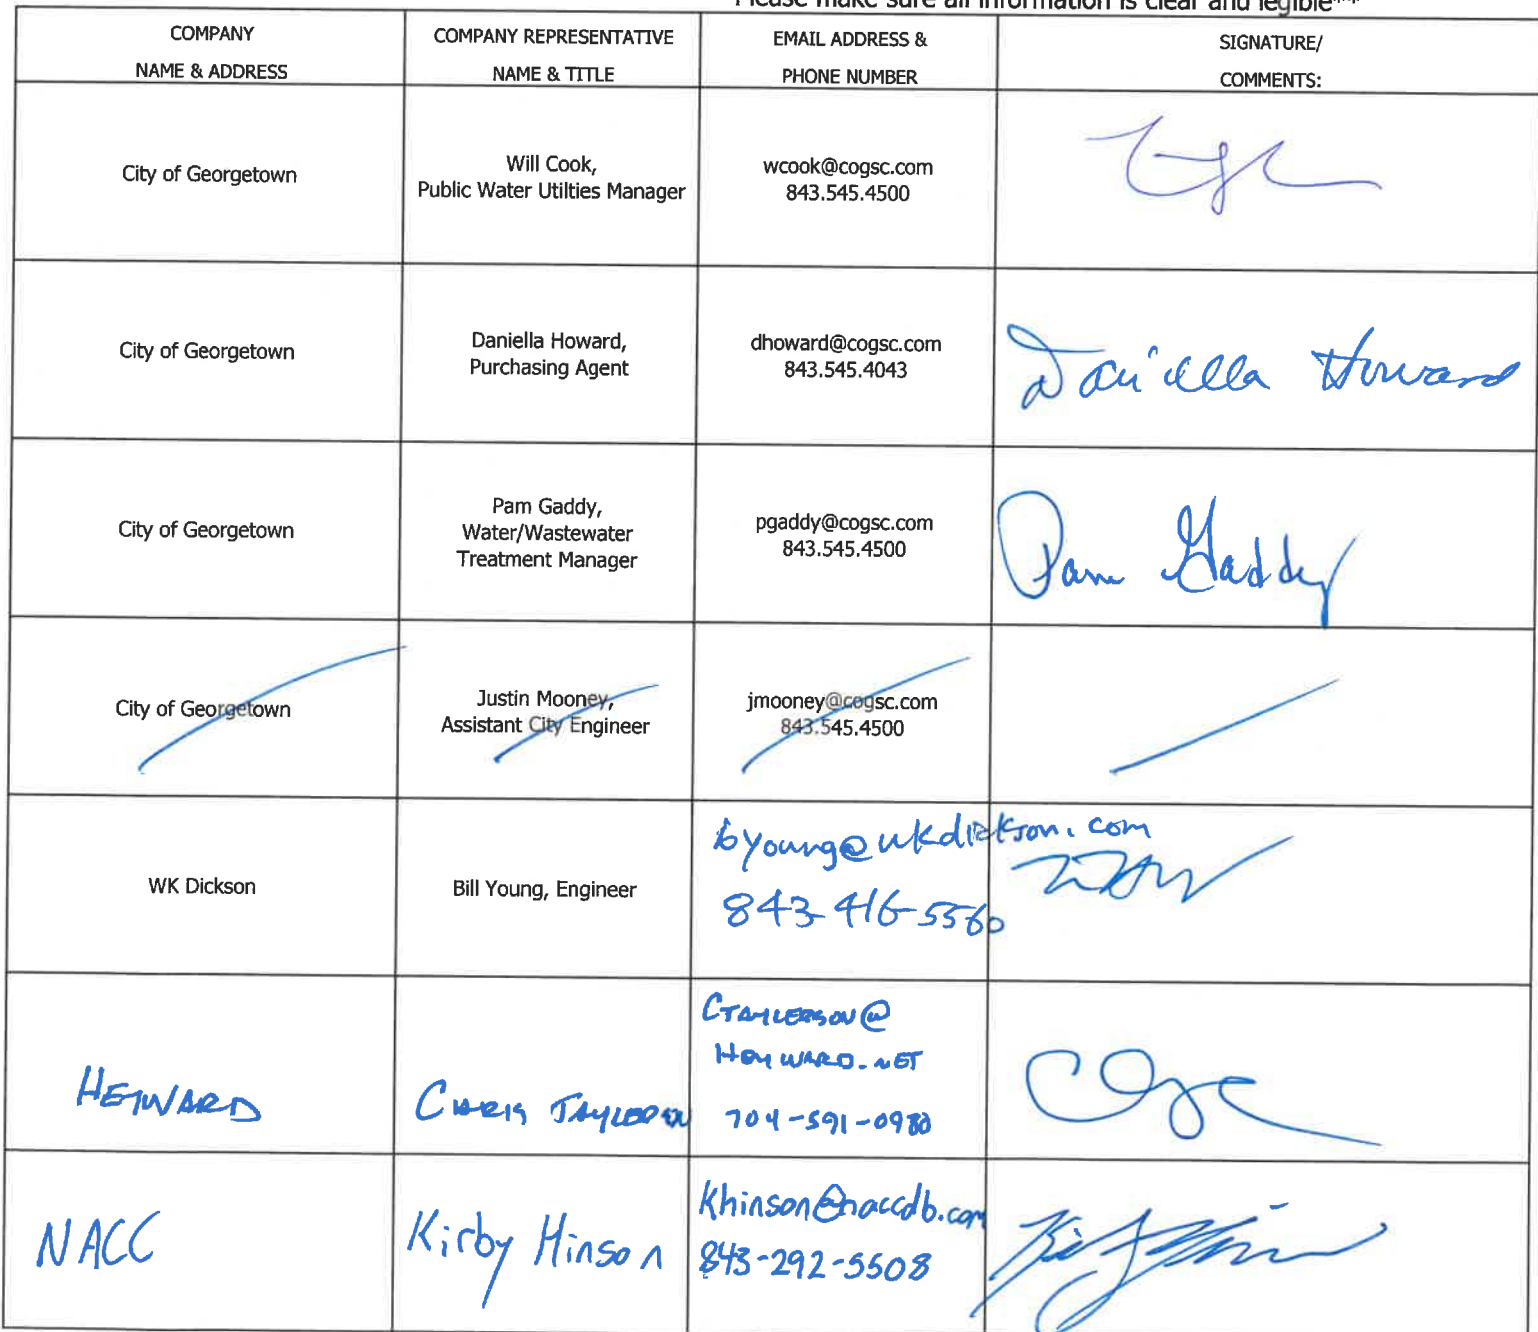 Please make sure all information is clear and legible**
COMPANY
NAME & ADDRESS
COMPANY REPRESENTATIVE
NAME & TITLE
EMAIL ADDRESS &
PHONE NUMBER
SIGNATURE/
COMMENTS:
City of Georgetown
Will Cook,
Public Water Utilties Manager
wcook@cogsc.com
843.545.4500
City of Georgetown
Daniella Howard,
Purchasing Agent
dhoward@cogsc.com
843.545.4043
Daniella Howard
City of Georgetown
Pam Gaddy,
Water/Wastewater
Treatment Manager
pgaddy@cogsc.com
843.545.4500
Pam Gaddy
City of Georgetown
Justin Mooney,
Assistant City Engineer
jmooney@cogsc.com
843.545.4500
WK Dickson
Bill Young, Engineer
byoung@wkdickson.com
843-416-5560
HEYWARD
CHRIS TAYLERSON
CTAYLERSON@
HEYWARD.NET
704-591-0980
NACC
Kirby Hinson
Khinson@naccdb.com
843-292-5508